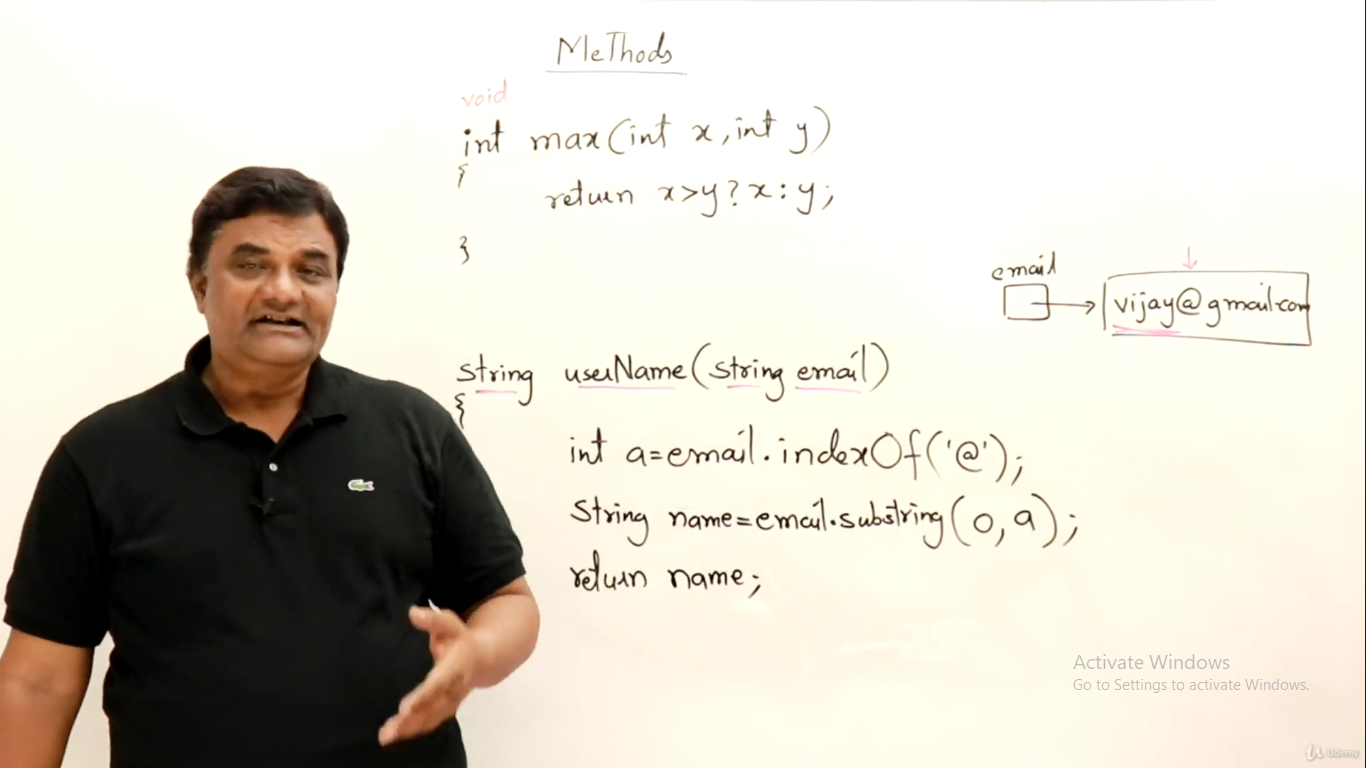 Methods
void
int max(int x, int y)
{
return x>y?x:y;
}
email
vijay@gmail.com
string userName(string email)
{
int a=email.indexOf('@');
String name=email.substring(0,a);
return name;
Activate Windows
Go to Settings to activate Windows.
Udemy